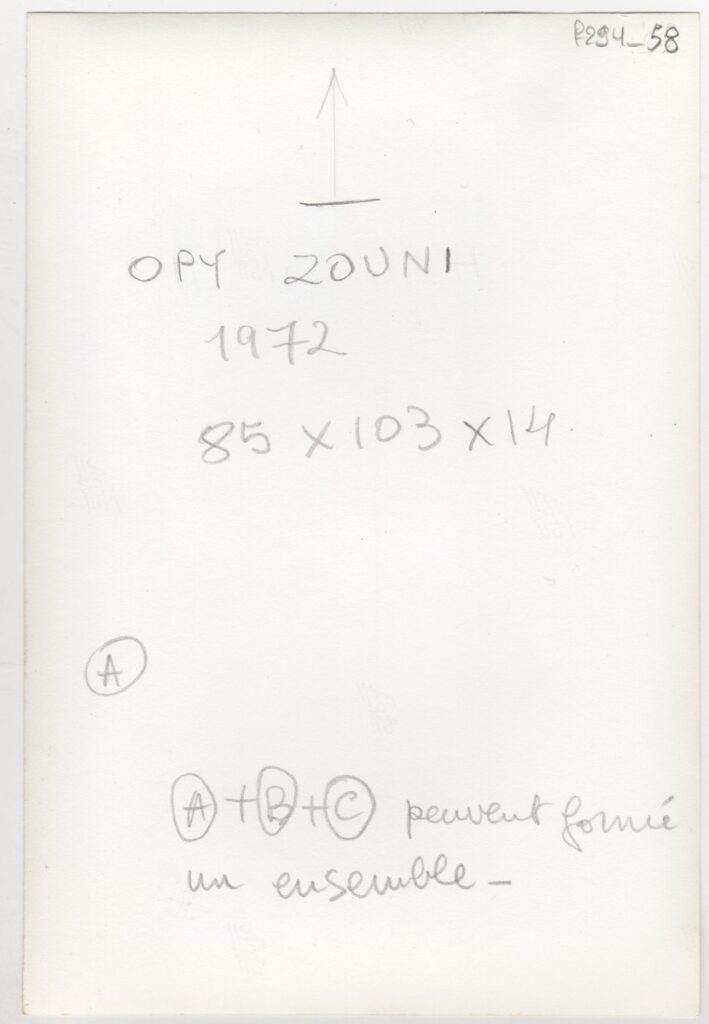 P294-58
OPY ZOUNI
1972
85 x 103 x 14
A
A + B + C peuvent formé
un ensemble -